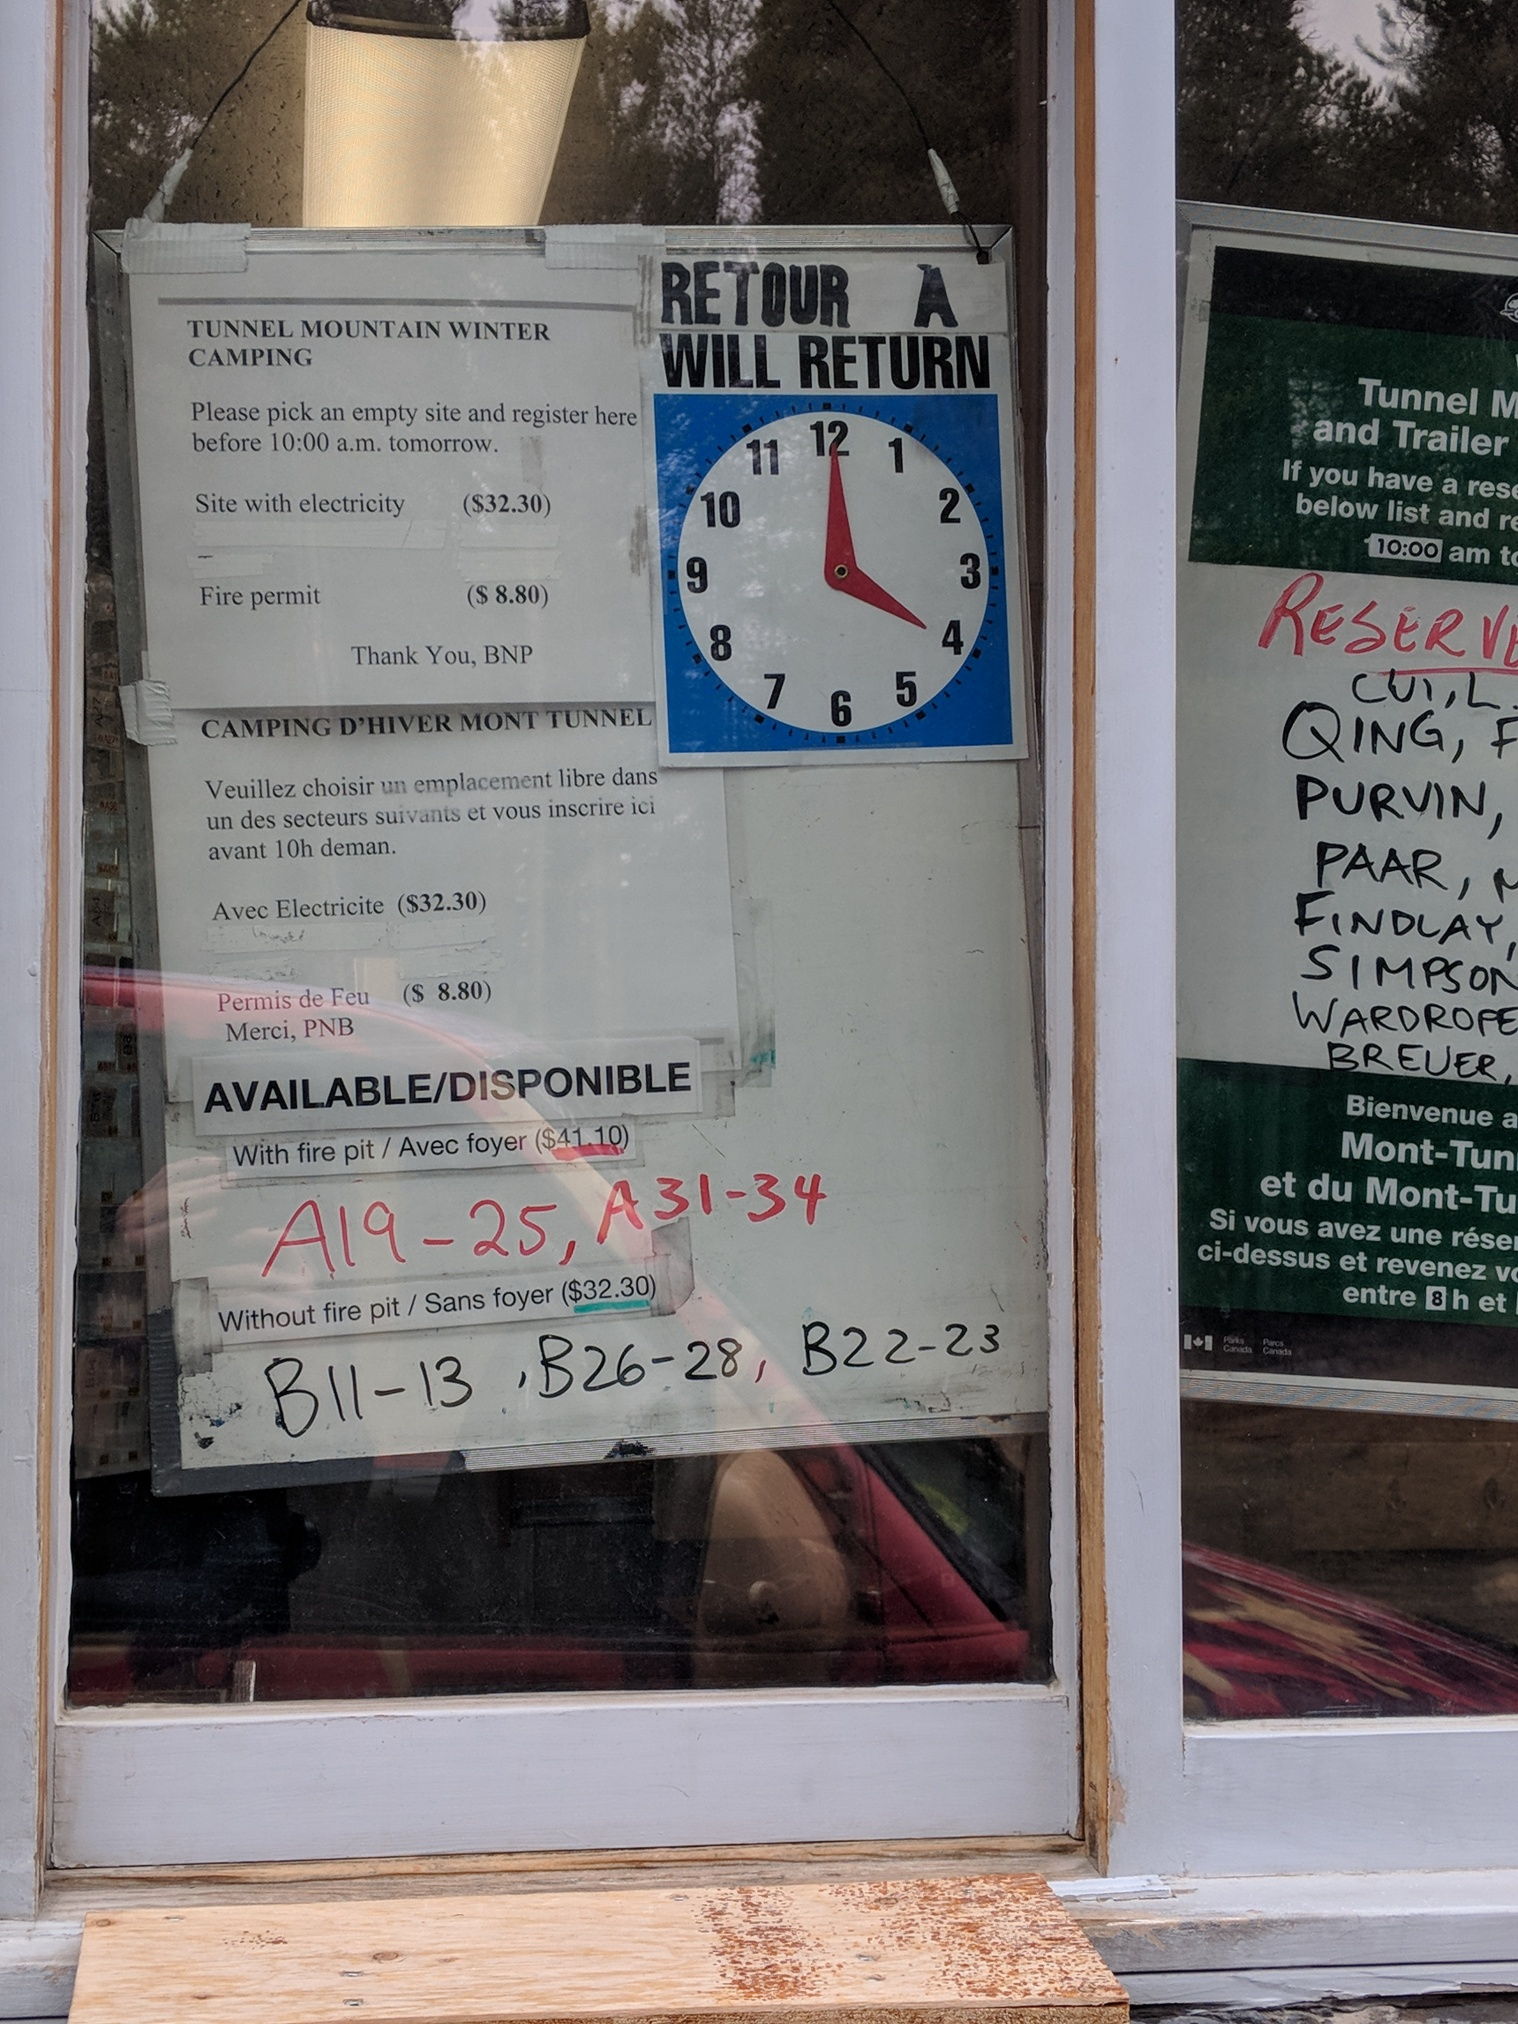 TUNNEL MOUNTAIN WINTER
CAMPING
Please pick an empty site and register here
before 10:00 a.m. tomorrow.
Site with electricity ($32.30)
Fire permit ($ 8.80)
Thank You, BNP
RETOUR A
WILL RETURN
12
1
2
3
4
5
6
7
8
9
10
11
CAMPING D'HIVER MONT TUNNEL
Veuillez choisir un emplacement libre dans
un des secteurs suivants et vous inscrire ici
avant 10h deman.
Avec Electricite ($32.30)
Permis de Feu ($ 8.80)
Merci, PNB
AVAILABLE/DISPONIBLE
With fire pit / Avec foyer ($41.10)
A19-25, A31-34
Without fire pit / Sans foyer ($32.30)
B11-13, B26-28, B22-23
Tunnel M
and Trailer
If you have a rese
below list and re
10:00 am to
RESERVE
CUI, L.
QING, F
PURVIN,
PAAR, M
FINDLAY,
SIMPSON
WARDROPE
BREUER,
Bienvenue a
Mont-Tunn
et du Mont-Tu
Si vous avez une réser
ci-dessus et revenez vo
entre 8 h et
Parks Canada
Parcs Canada